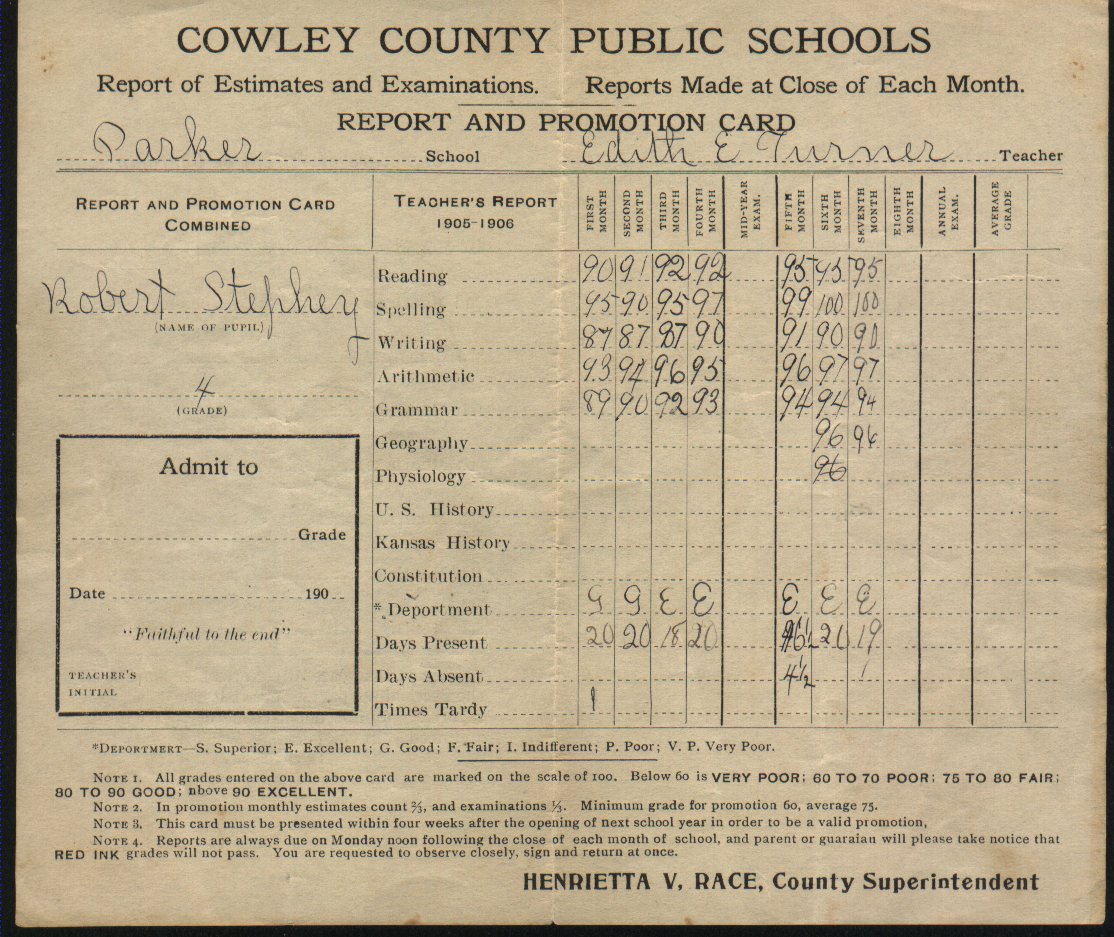 COWLEY COUNTY PUBLIC SCHOOLS
Report of Estimates and Examinations. Reports Made at Close of Each Month.
REPORT AND PROMOTION CARD
Parker School Edith E Turner Teacher
REPORT AND PROMOTION CARD COMBINED
TEACHER'S REPORT 1905-1906
FIRST MONTH SECOND MONTH THIRD MONTH FOURTH MONTH MID-YEAR EXAM. FIFTH MONTH SIXTH MONTH SEVENTH MONTH EIGHTH MONTH ANNUAL EXAM. AVERAGE GRADE
Robert Stephey
(NAME OF PUPIL)
4
(GRADE)
Admit to
Grade
Date 190
"Faithful to the end"
TEACHER'S
INITIAL
Reading 90 91 92 92 95 95 95
Spelling 95 90 95 97 99 100 100
Writing 87 87 87 90 91 90 90
Arithmetic 93 94 96 95 96 97 97
Grammar 89 90 92 93 94 94 94
Geography 96 96
Physiology 96
U. S. History
Kansas History
Constitution
* Deportment G G E E E E E
Days Present 20 20 18 20 16½ 20 19
Days Absent 4½ 1
Times Tardy 1
*DEPORTMERT—S. Superior; E. Excellent; G. Good; F. Fair; I. Indifferent; P. Poor; V. P. Very Poor.
NOTE 1. All grades entered on the above card are marked on the scale of 100. Below 60 is VERY POOR; 60 TO 70 POOR; 75 TO 80 FAIR;
80 TO 90 GOOD; above 90 EXCELLENT.
NOTE 2. In promotion monthly estimates count ⅔, and examinations ⅓. Minimum grade for promotion 60, average 75.
NOTE 3. This card must be presented within four weeks after the opening of next school year in order to be a valid promotion,
NOTE 4. Reports are always due on Monday noon following the close of each month of school, and parent or guaraian will please take notice that
RED INK grades will not pass. You are requested to observe closely, sign and return at once.
HENRIETTA V, RACE, County Superintendent